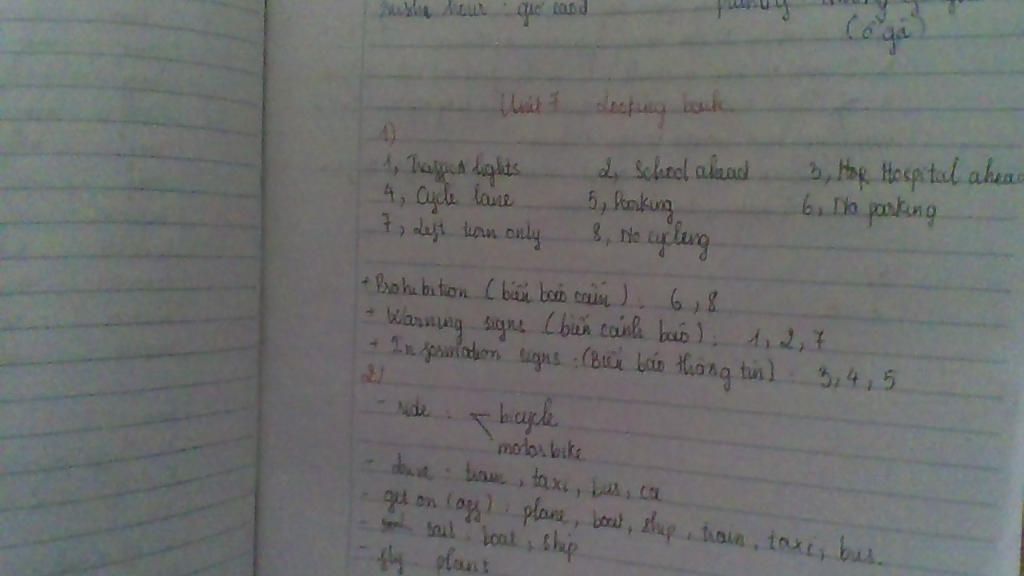 giờ
(ổ gà)
Unit 7 Looking back
1)
1, Traffic lights 2, School ahead 3, Hospital ahead
4, Cycle lane 5, Parking 6, No parking
7, Left turn only 8, No cycling
+ Prohibition (biển báo cấm) : 6, 8
+ Warning signs (biển cảnh báo) : 1, 2, 7
+ Information signs : (Biển báo thông tin) : 3, 4, 5
2)
- ride : bicycle
motorbike
- drive : train, taxi, bus, car
- get on (off) : plane, boat, ship, train, taxi, bus.
- sail : boat, ship
- fly : plane